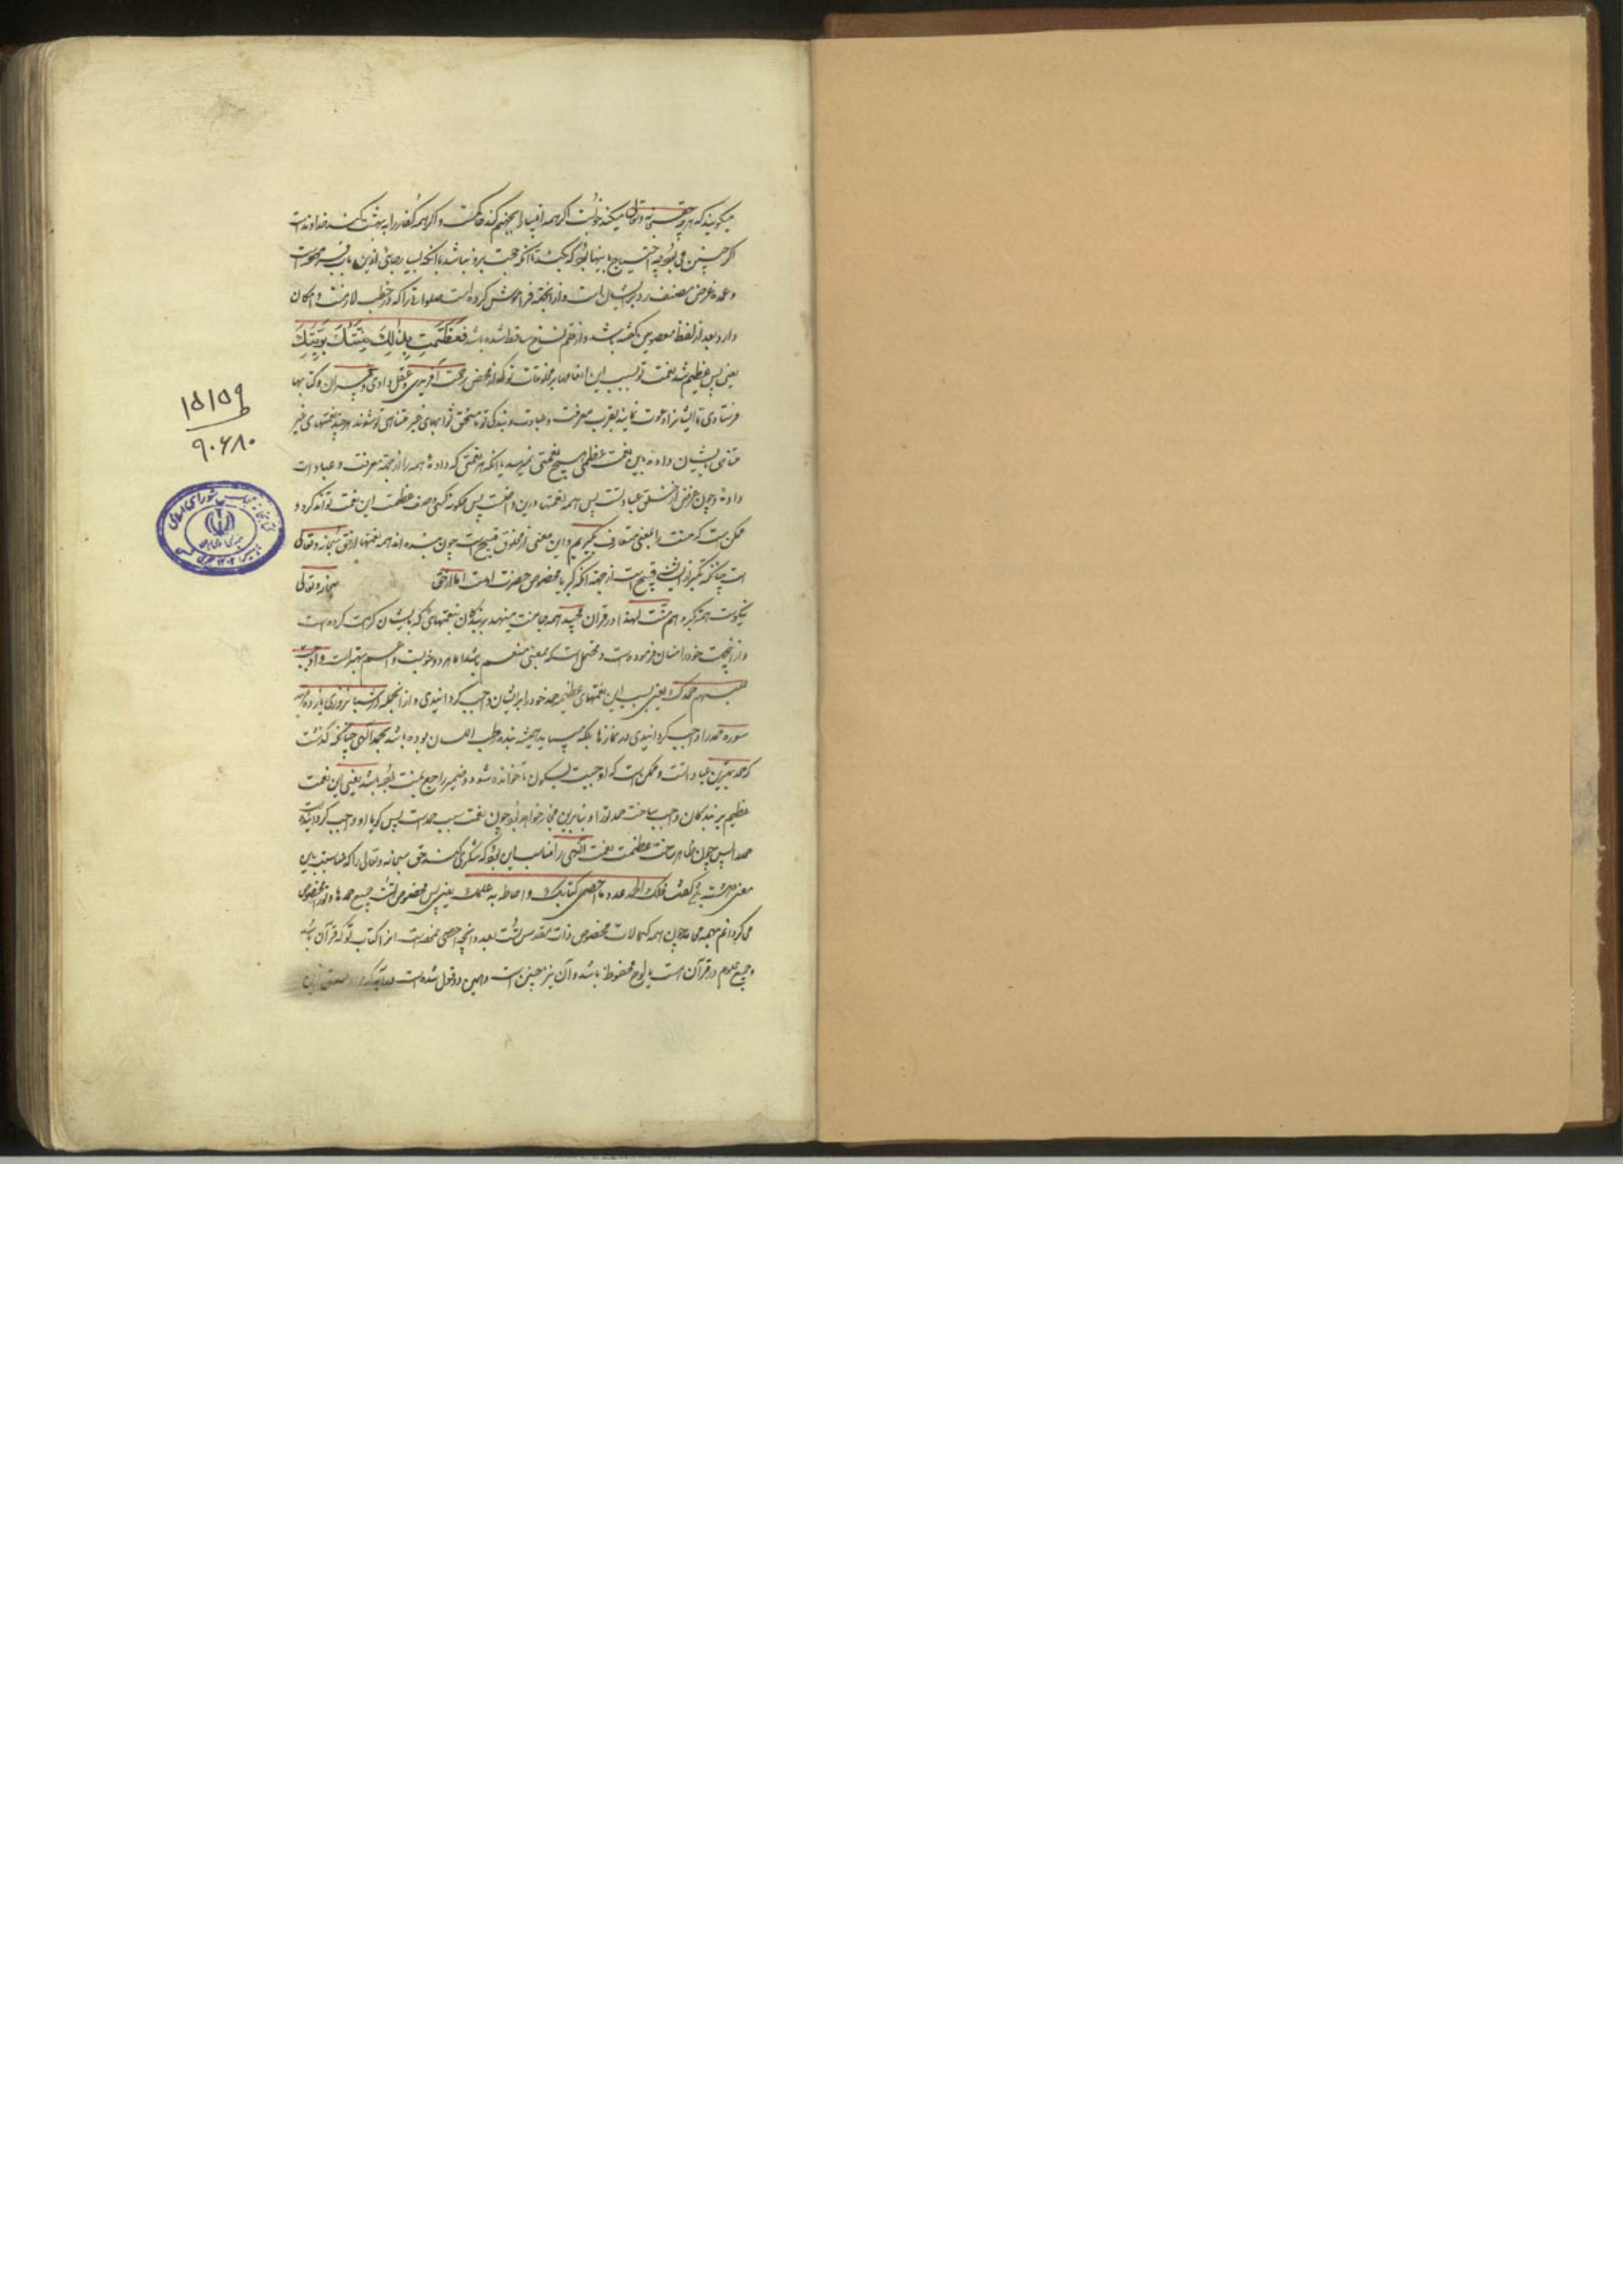 میکویند که هرچه حق سبحانه و تعالی میکند خوبست اکر همه انبیا را بجهنم کند حاکمست و اکر همه کفار را به بهشت کند خداوند است
اکر چنین می بود چه احتیاج باینها بود که بکند تا آنکه حجت برو نباشد با آنکه بسیار جای ازین باب
و عمده غرض مصنف رد بر ایشان است و از انجمله فراموش کرده است صلواتی را که در خطب لازمست و امکان
دارد بعد از لفظ معصومین کفته باشد و از قلم نساخ ساقط شده باشد فعظمت بذلک منتک بریتک
یعنی پس عظیم شد نعمت تو بسبب این انعامها بر مخلوقات تو که از محض رحمت آفریدی و عقل دادی و پیغمبران و کتابها
فرستادی تا ایشانرا دعوت نمایند بقرب معرفت و عبادت و بندکی تو تا مستحق ثوابهای غیر متناهی تو شوند هرچند نعمتهای غیر
متناهی بایشان داده باین نعمت عظمی هیچ نعمتی نمیرسد با آنکه هر نعمتی که دادهٔ همه را از جهة معرفت و عبادات
دادهٔ و چون غرض از خلق عبادتست پس همه نعمتها درین داخلست پس چکونه کسی وصف عظمت این نعمت تواند کرد و
ممکن است که منت را بمعنی متعارف بکیریم و این معنی از مخلوق قبیح است چون بنده اند همه نعمتها از حق سبحانه و تعالی
است چنانکه تکبر از ایشان قبیح است از جهة آنکه کبریا مخصوص حضرت اوست اما از حق سبحانه و تعالی
نیکوست هم تکبر و هم منت لهذا در قرآن مجید همه جا منت مینهد بر بندکان بنعمتهای که بایشان کرامت کرده است
و از انجهت خود را منان فرموده است و محتمل است که بمعنی منعم باشد اما هر دو خوبست و اعم بهتر است و اوجب
علیهم حمدک یعنی بسبب این نعمتهای عظیمه حمد خود را بر ایشان واجب کردانیدی و از انجمله در شبانروزی یازده مرتبه
سوره حمد را واجب کردانیدی در نمازها بلکه میباید همیشه بنده رطب اللسان بوده باشد بحمد الهی چنانکه کذشت
که حمد بهترین عبادتست و ممکن است که اوجبت بسکون تا خوانده شود و ضمیر راجع بمنت بوده باشد یعنی این نعمت
عظیم بر بندکان واجب ساخت حمد تو را و بنابرین مجاز خواهد بود چون نعمت سبب حمد است پس کویا او واجب کردانیده است
حمد را پس چون ظاهر ساخت عظمت نعمت الهی را مناسب این بود که شکری کند حق سبحانه و تعالی را که مناسبت باین
معنی داشته باشد کفت فلک الحمد عدد ما احصی کتابک و احاط به علمک یعنی پس مخصوص تست جمیع حمدها و تو را مخصوص
می کردانم بهمه محامد چون همه کمالات مخصوص ذات مقدس تست بعدد انچه احصی نموده است انرا کتاب تو که قرآن باشد
و جمیع علوم در قرآن است یا لوح محفوظ باشد و آن نیز چنین است و همین دو قول شده است
۱۵۱۵۹ ط
۹۰۶۸۰
کتابخانه مجلس شورای اسلامی